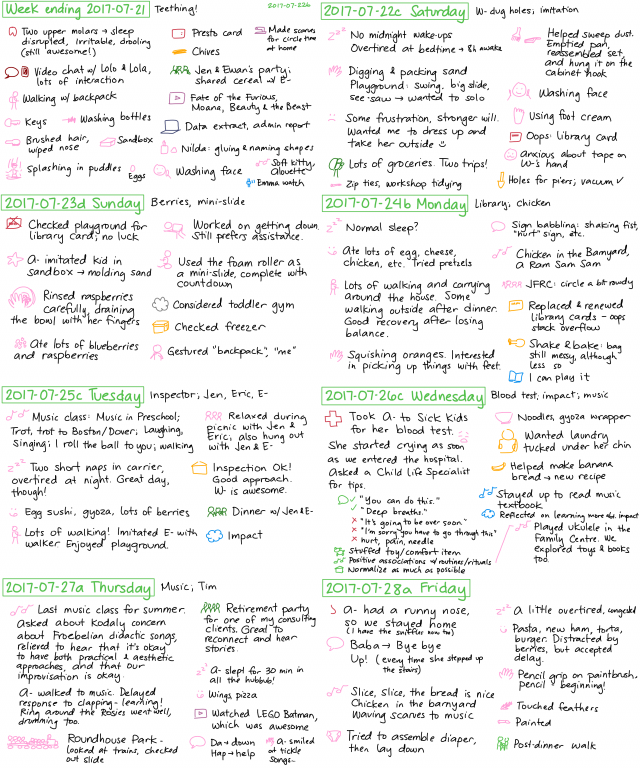 Week ending 2017-07-21
Teething!
2017-07-22b
Two upper molars → sleep
disrupted, irritable, drooling
(still awesome!)
Video chat w/ Lolo & Lola,
lots of interaction
Walking w/ backpack
Keys
Washing bottles
Brushed hair,
wiped nose
Sandbox
Splashing in puddles
Eggs
Presto card
Chives
Jen & Ewan's party:
shared cereal w/ E-
Fate of the Furious,
Moana, Beauty & the Beast
Data extract, admin report
Nilda: gluing & naming shapes
Washing face
Made scarves
for circle time
at home
Soft kitty,
Alouette
Emma watch
2017-07-22c Saturday
W- dug holes; imitation
No midnight wake-ups
Overtired at bedtime → 8h awake
Digging & packing sand
Playground: swing, big slide,
see-saw → wanted to solo
Some frustration, stronger will.
Wanted me to dress up and
take her outside
Lots of groceries. Two trips!
Zip ties, workshop tidying
Helped sweep dust.
Emptied pan,
reassembled set,
and hung it on the
cabinet hook
Washing face
Using foot cream
Oops: Library card
anxious about tape on
W-'s hand
Holes for piers; vacuum ✓
2017-07-23d Sunday
Berries, mini-slide
Checked playground for
library card; no luck
A- imitated kid in
sandbox → molding sand
Rinsed raspberries
carefully, draining
the bowl with her fingers
Ate lots of blueberries
and raspberries
Worked on getting down.
Still prefers assistance.
Used the foam roller as
a mini-slide, complete with
countdown
Considered toddler gym
Checked freezer
Gestured "backpack", "me"
2017-07-24b Monday
Library; chicken
Normal sleep?
Ate lots of egg, cheese,
chicken, etc. Tried pretzels
Lots of walking and carrying
around the house. Some
walking outside after dinner.
Good recovery after losing
balance.
Squishing oranges. Interested
in picking up things with feet.
Sign babbling: shaking fist,
"hurt" sign, etc.
Chicken in the Barnyard,
a Ram Sam Sam
JFRC: circle a bit rowdy
Replaced & renewed
library cards - oops
stack overflow
Shake & bake: bag
still messy, although
less so
I can play it
2017-07-25c Tuesday
Inspector; Jen, Eric, E-
Music class: Music in Preschool;
Trot, trot to Boston/Dover; Laughing,
Singing; I roll the ball to you; walking
Two short naps in carrier,
overtired at night. Great day,
though!
Egg sushi, gyoza, lots of berries
Lots of walking! Imitated E- with
walker. Enjoyed playground.
Relaxed during
picnic with Jen &
Eric; also hung out
with Jen & E-
Inspection OK!
Good approach.
W- is awesome.
Dinner w/ Jen & E-
Impact
2017-07-26c Wednesday
Blood test, impact; music
Took A- to Sick Kids
for her blood test.
She started crying as soon
as we entered the hospital.
Asked a Child Life Specialist
for tips.
✓ "You can do this."
✓ "Deep breaths."
✗ "It's going to be over soon"
✗ "I'm sorry you have to go through this"
✗ hurt, pain, needle
Stuffed toy/comfort item
Positive associations w/ routines/rituals
Normalize as much as possible
Noodles, gyoza wrapper
Wanted laundry
tucked under her chin
Helped make banana
bread → new recipe
Stayed up to read music
textbook.
Reflected on learning more abt. impact
Played ukulele in the
Family Centre. We
explored toys & books
too.
2017-07-27a Thursday
Music; Tim
Last music class for summer.
Asked about Kodaly concern
about Froebelian didactic songs,
relieved to hear that it's okay
to have both practical & aesthetic
approaches, and that our
improvisation is okay.
A- walked to music. Delayed
response to clapping - learning!
Ring around the Rosies went well,
drumming too.
Roundhouse Park -
looked at trains, checked
out slide
Retirement party
for one of my consulting
clients. Great to
reconnect and hear
stories.
A- slept for 30 min in
all the hubbub!
Wings, pizza
Watched LEGO Batman,
which was awesome
Da → down
Hap → help
A- smiled
at tickle
songs-
2017-07-28a Friday
A- had a runny nose,
so we stayed home
(I have the sniffles now too)
Baba → Bye bye
Up! (every time she stepped up
the stairs)
Slice, Slice, the bread is nice
Chicken in the barnyard
Waving scarves to music
Tried to assemble diaper,
then lay down
A little overtired, congested
Pasta, new ham, torta,
burger. Distracted by
berries, but accepted
delay.
Pencil grip on paintbrush,
pencil - beginning!
Touched feathers
Painted
Post-dinner walk